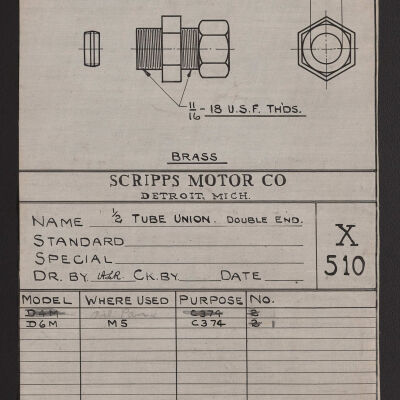 11/16 - 18 U.S.F. TH'DS.
BRASS
SCRIPPS MOTOR CO
DETROIT, MICH.
NAME 1/2 TUBE UNION. DOUBLE END.
STANDARD
SPECIAL
DR. BY CK. BY DATE
X
510
MODEL WHERE USED PURPOSE NO.
D4M C374 2
D6M M5 C374 2 1